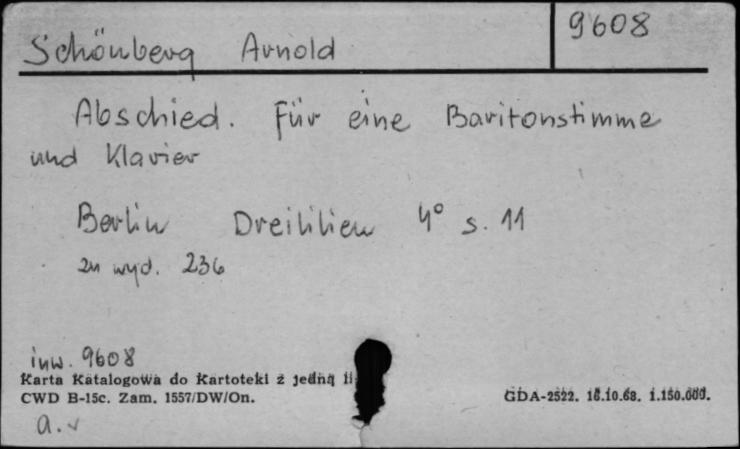 9608
Schönberg Arnold
Abschied. Für eine Baritonstimme
und Klavier
Berlin Dreililien 4° s. 11
zn wyd. 236
inw. 9608
Karta Katalogowa do Kartoteki z jedną li
CWD B-15c. Zam. 1557/DW/On.
GDA-2522. 16.10.68. 1.150.000.
a.